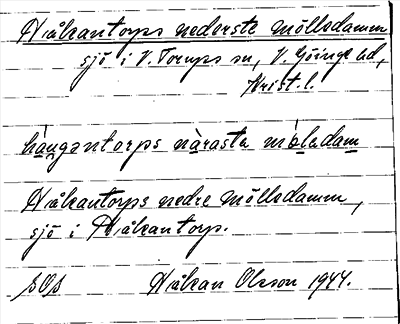 Håkantorps nederste möllsdamm
sjö i V. Torups sn, V. Göinge hd,
Krist. l.
hàngəntorps nàrasta mǿladam
Håkantorps nedre möllsdamm,
sjö i Håkantorp.
SOS Håkan Olsson 1944.